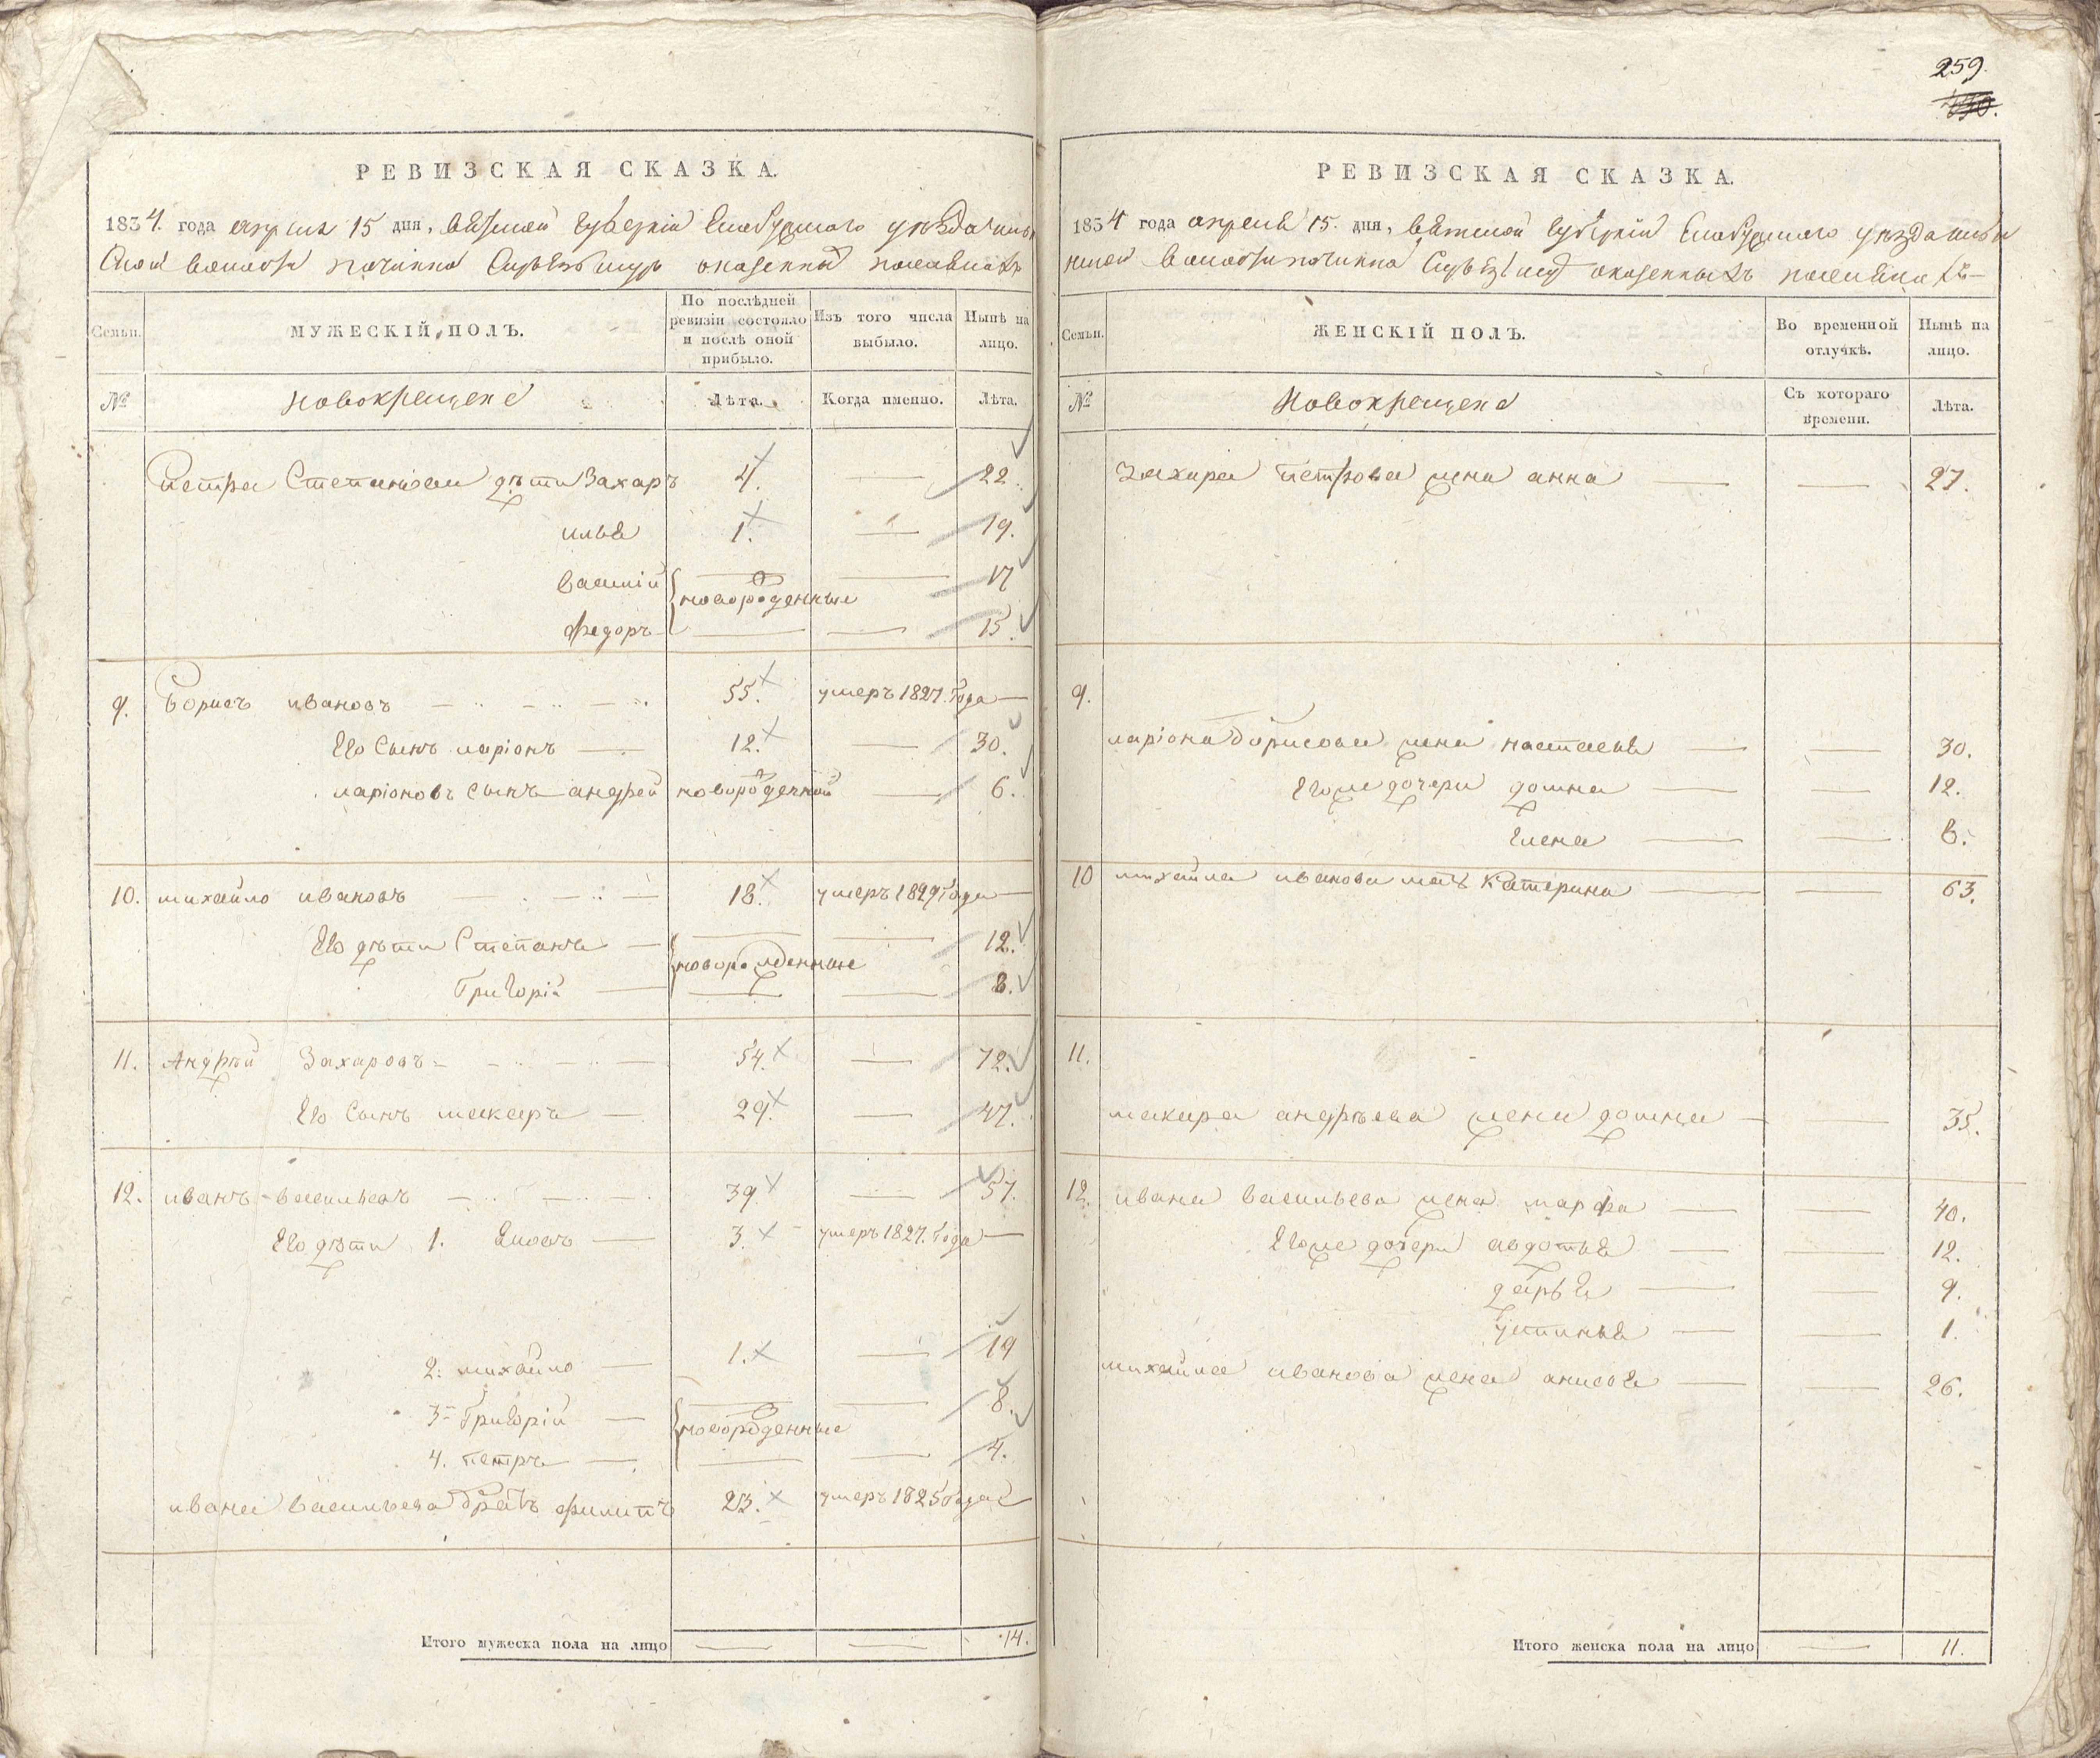 259.
РЕВИЗСКАЯ СКАЗКА.
1834. года апреля 15 дня, вятской губернїи Елабужского уѣзда
волости починка казенныхъ
Семьи.
МУЖЕСКІЙ ПОЛЪ.
По послѣдней ревизіи состояло и послѣ оной прибыло.
Изъ того числа выбыло.
Нынѣ на лицо.
№
новокрещене
Лѣта.
Когда именно.
Лѣта.
Петра Степанова дѣти Захаръ 4. 22.
илья 1. 19.
василїй 17
новороденные
Федоръ 15.
9. Борисъ ивановъ 55. умеръ 1827. года
Его сынъ ларіонъ 12. 30.
ларіоновъ сынъ андрей новороденной 6.
10. михайло ивановъ 18. умеръ 1829 года
Его дѣти Степанъ 12.
новорожденные
Григорій 8.
11. Андрѣй Захаровъ 54. 72.
Его сынъ макаръ 29. 47.
12. иванъ васильевъ 39. 57.
Его дѣти 1. 3. умеръ 1827. года
2. михайло 1. 19
3 Григорій 8.
новороденные
4. петръ 4.
ивана васильева братъ филипъ 23. умеръ 1825 года
Итого мужеска пола на лицо 14.
РЕВИЗСКАЯ СКАЗКА.
1834 года апреля 15. дня, вятской губернїи Елабужского уѣзда
волости починка казенныхъ
Семьи.
ЖЕНСКІЙ ПОЛЪ.
Во временной отлучкѣ.
Нынѣ на лицо.
№
Новокрещене
Съ котораго времени.
Лѣта.
Захара петрова жена анна 27.
9.
ларіона борисова жена настасья 30.
Его же дочери домна 12.
Елена 8.
10 михайла иванова мать Катерина 63.
11.
макара андрѣева жена домна 35.
12. ивана васильева жена марфа 40.
Его же дочери авдотья 12.
дарья 9.
устинья 1.
михайла иванова жена анисья 26.
Итого женска пола на лицо 11.